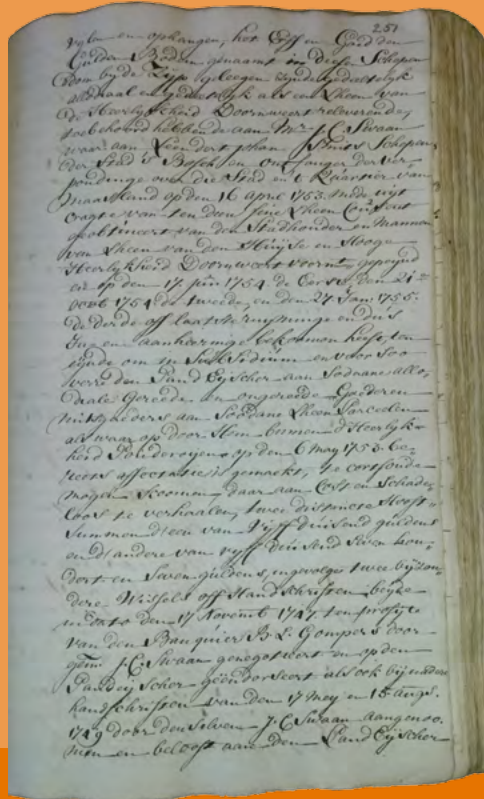 251
en ophangen, het Erff en Goed den
Gulden Bodden genaamt in diesen Schepen
Dom by de Zijp geleegen zijnde gedeeltelyk
allodiaal en gedeeltelyk als een Leen van
de Heerlykheid Doorwaert releverende,
toebehoord hebbende aan Mr. J. C. Swaan
waar aan Leendert Johan Schepen
der Stad 's Bosch en ontfanger der Ver-
pondinge over die Stad en 't Quartier van
Maasland op den 16 April 1753. mede uijt
cragte van ten deen Leen Consent
geobtineert van den Stadhouder en Mannen
van Leen van den Huijse en Hooge
Heerlykheid Doorwaert voorn. gepeynd
en op den 17 Jun 1754 de Eerste, den 21
Octob 1754 de tweede, en den 27 Jan 1755.
de derde off laatste en dus
In en aanheeringe bekoomen heeft, ten
eijnde om in Subsidium en voor soo
verre den Pand Eijscher aan Sodaane allo-
diale Gereede en ongereede Goederen
mitsgaders aan Soodane Leen Parceelen
als waar op door Hem binnen d'Heerlyk-
heid Poederoijen op den 6 may 1753. be-
reets affectatie is gemaakt, te cort soude
mogen koomen, daar aan Cost en Schade-
loos te verhaalen, twee distincte Hooft-
Summen d'een van Vijff duijsend guldens
en d' andere van vyff duijsend Seven hon-
dert en Seven guldens, ingevolge twee bijson-
dere Wissels off Handschriften beijde
in dato den 17 Novemb 1747. ten profijte
van den Banquier B. L. Gompers door
gem. J. C. Swaan genegotieert en op den
Pandeijscher geëndosseert als ook bij nadere
handschriften van den 17 Mey en 15 Aug.
1749 door denselven J. C. Swaan aangeno-
men en belooft aan den Pand Eijscher